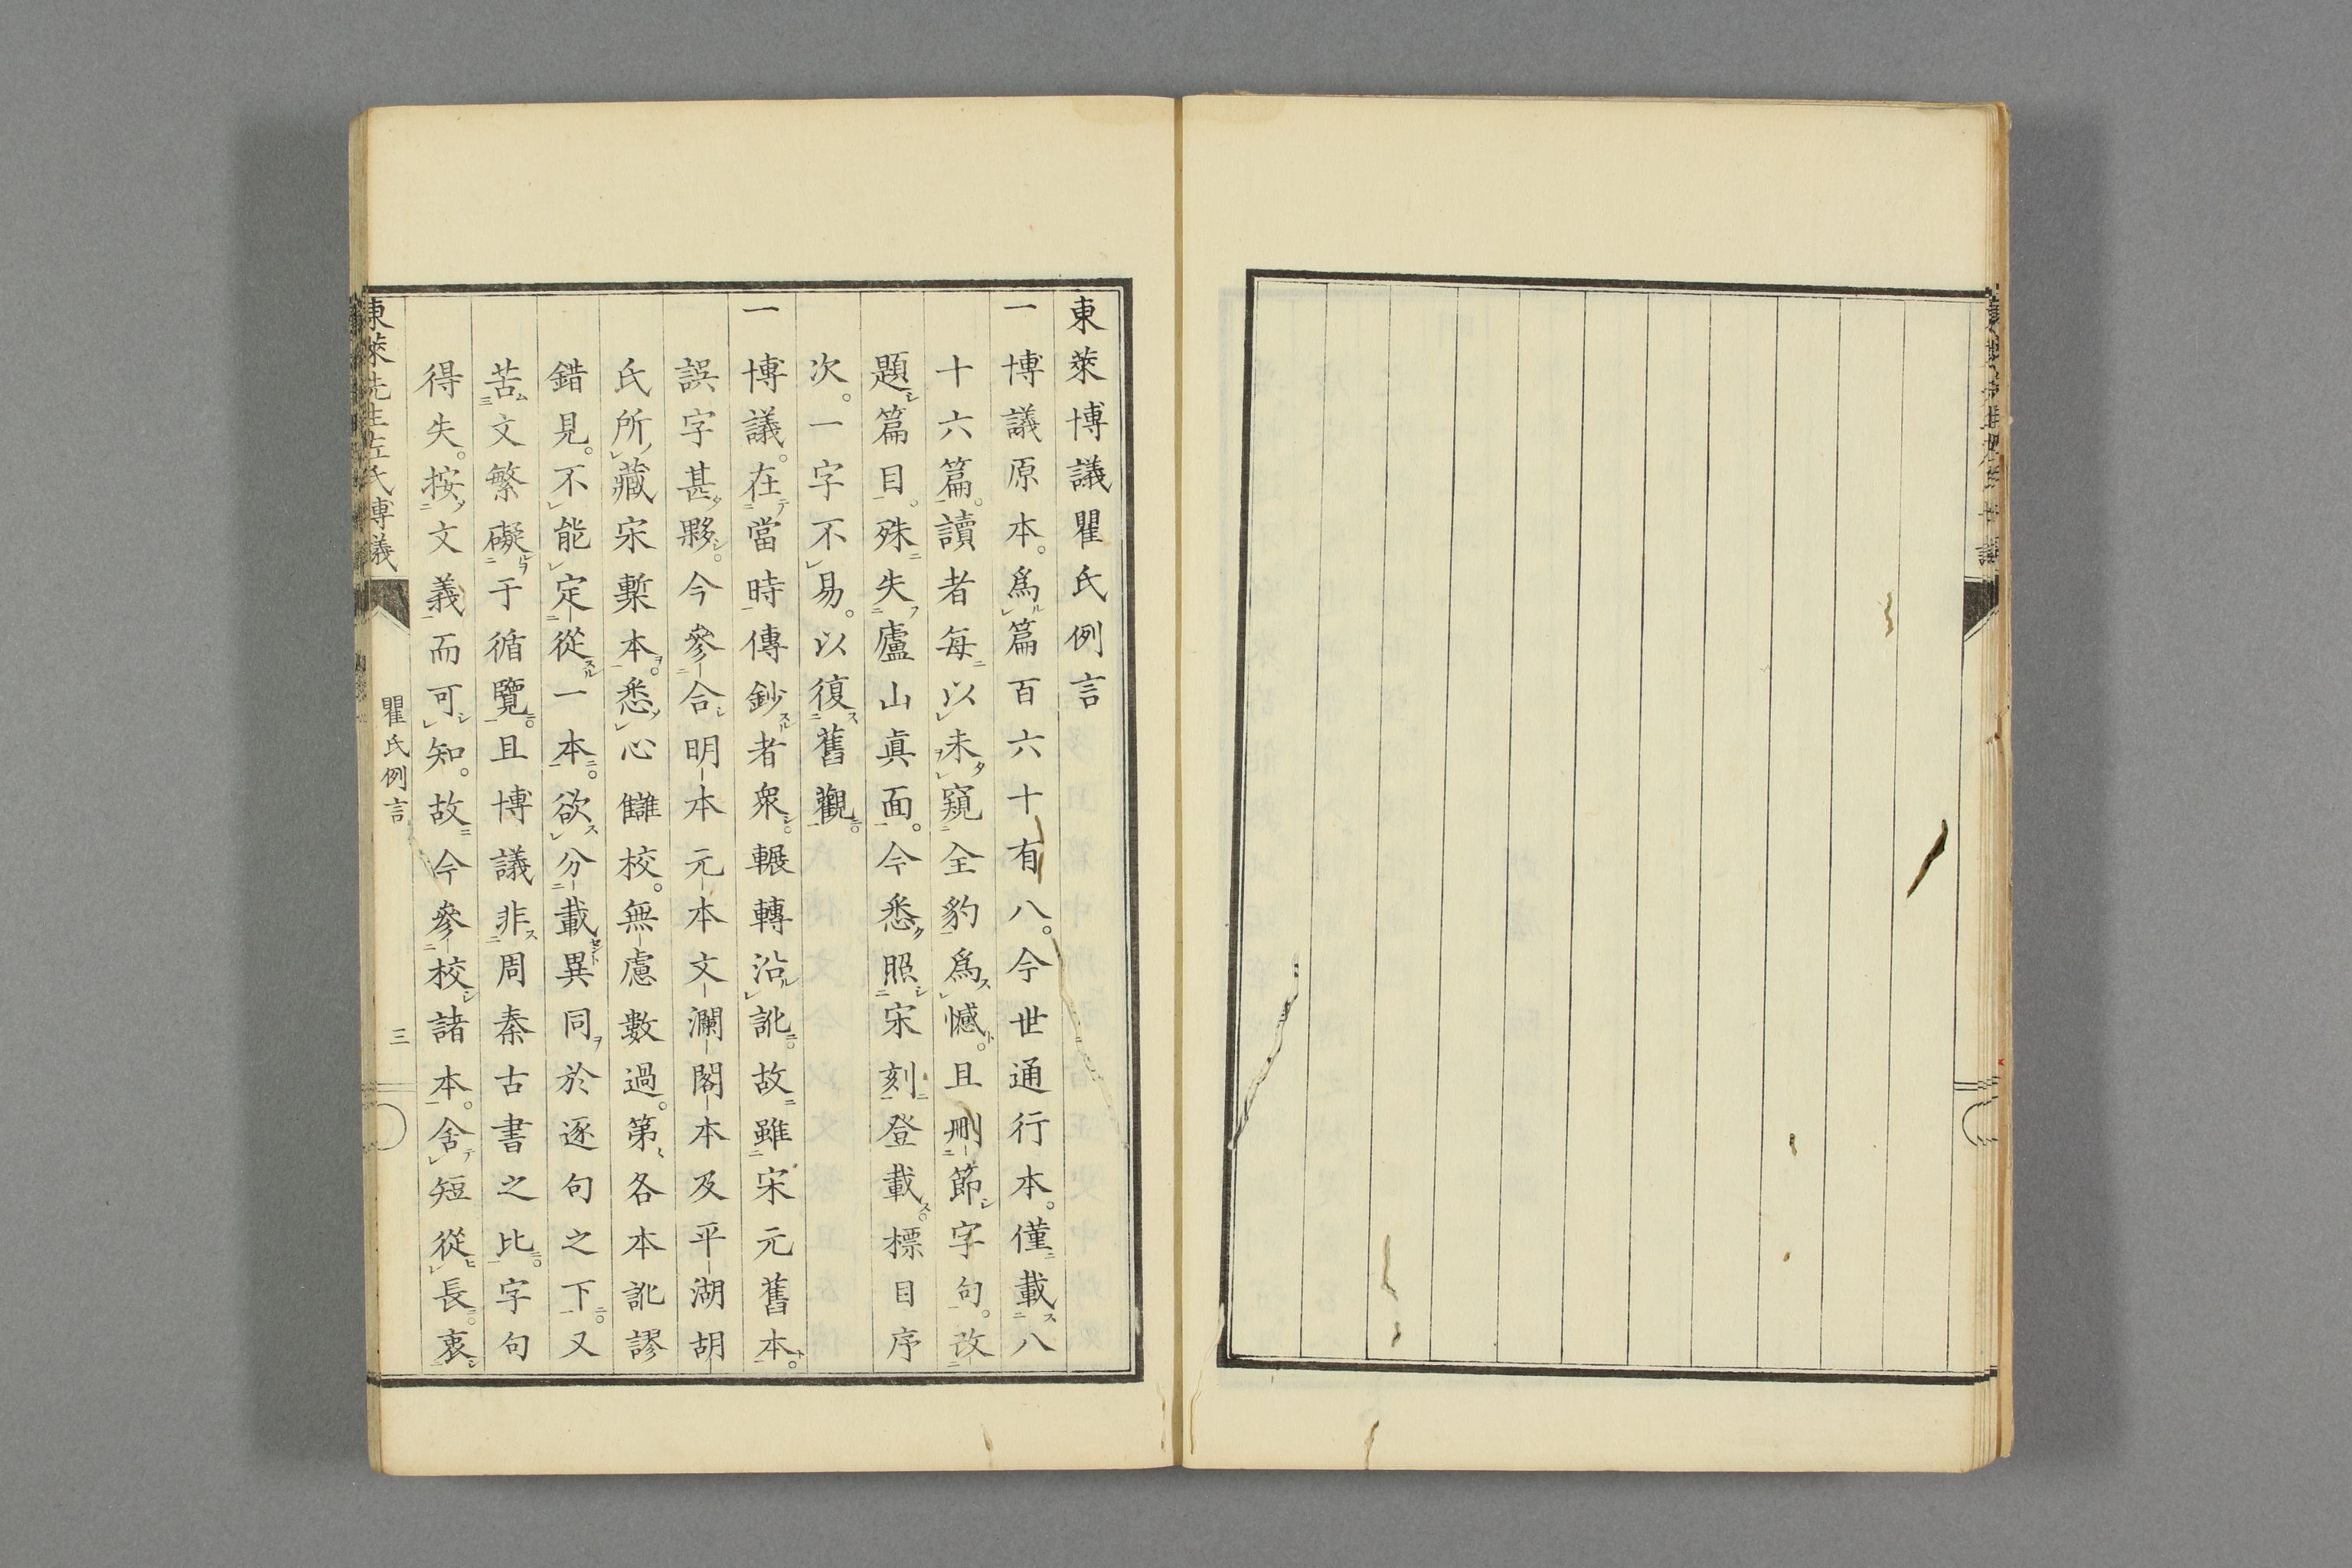 東萊博議瞿氏例言
一博議原本。爲篇百六十有八。今世通行本。僅載八
十六篇。讀者每以未窺全豹爲憾。且刪節字句。改
題篇目。殊失廬山眞面。今悉照宋刻登載。標目序
次。一字不易。以復舊觀。
一博議。在當時傳鈔者衆。輾轉沿訛。故雖宋元舊本。
誤字甚夥。今參合明本元本文瀾閣本及平湖胡
氏所藏宋槧本。悉心讎校。無慮數過。第各本訛謬
錯見。不能定從一本。欲分載異同於逐句之下。又
苦文繁礙于循覽。且博議非周秦古書之比。字句
得失。按文義而可知。故今參校諸本。舍短從長。衷
東萊先生左氏博議
瞿氏例言
三